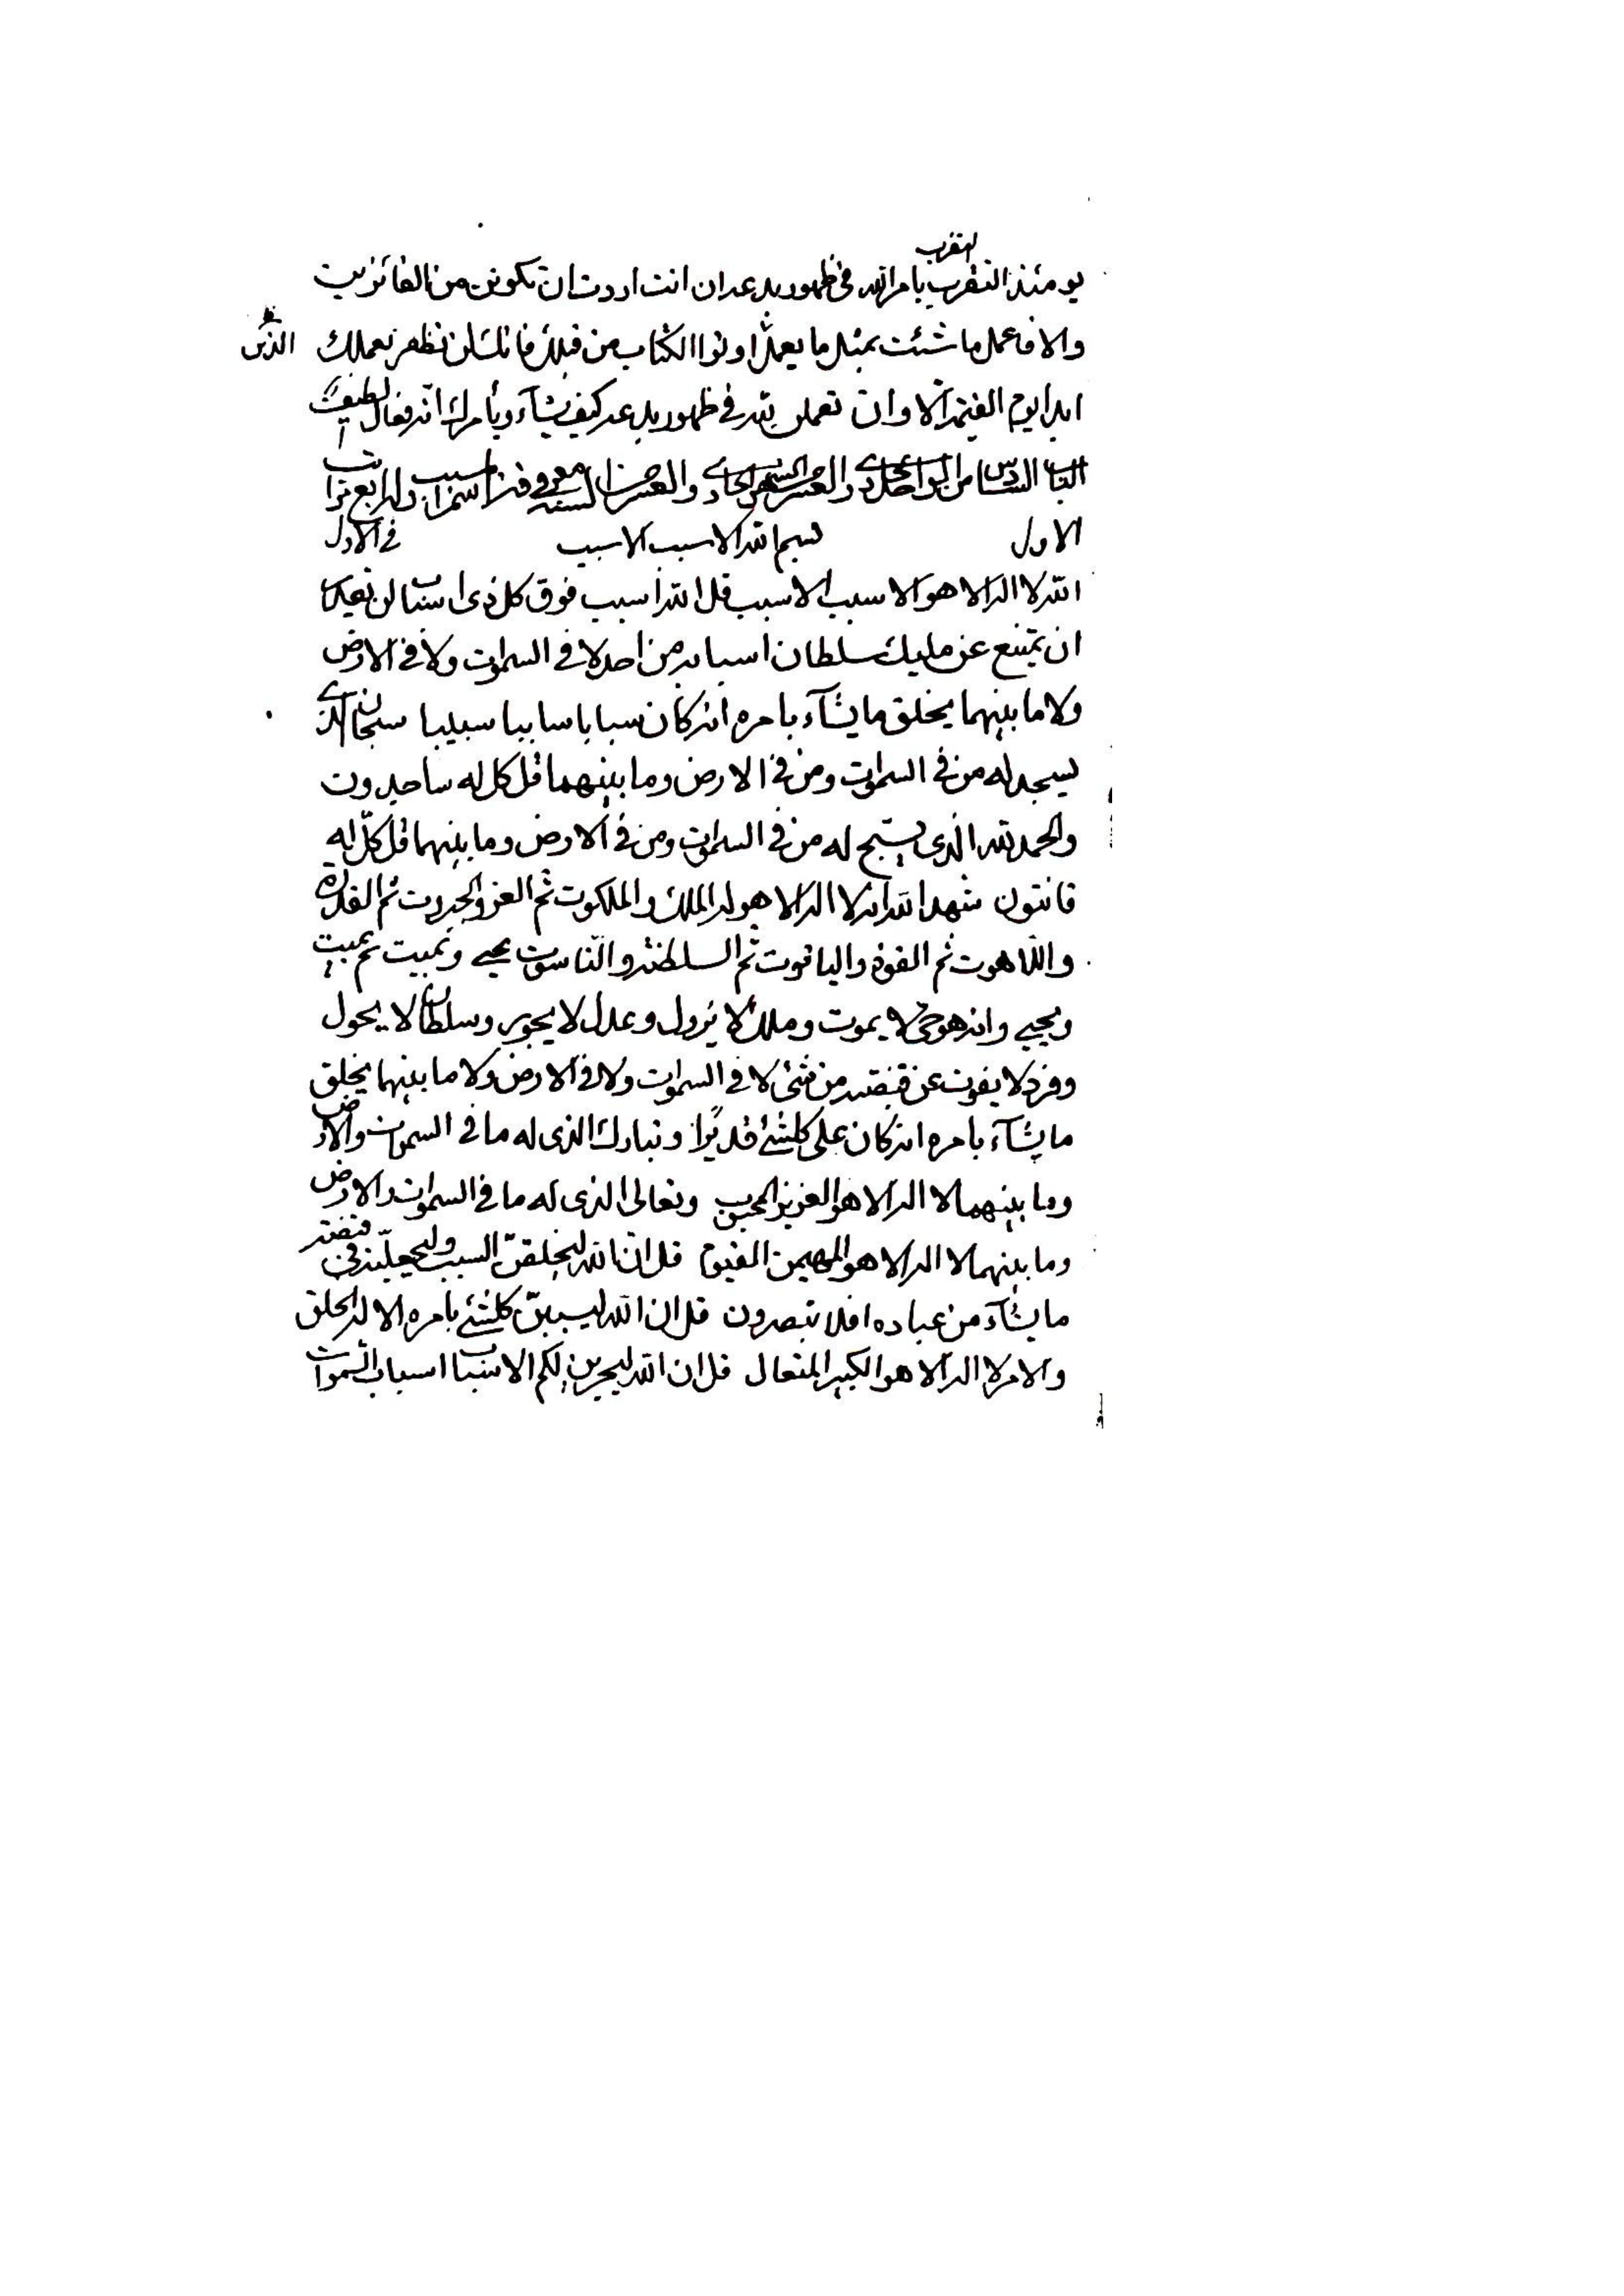 لتقرب
يومئذ التقرب بامر الله فى ظهور بدعه ان انت اردت ان تكونن من الفائزين
والا فاعمل ما شئت بمثل ما يعمل اوتوا الكتاب من قبلك فانك لن تظفر بعملك الذين
ابدا يوم القيمة الا وان تعملن لله فى ظهور بدعه كيف يشآء ويأمرك انه فعال لطيف
الباب السادس من الواحد والعشر السنة فى معرفة اسم اسبب وله اربع مراتب
الاول بسم الله الاسبب الاسبب فى الاول
الله لا اله الا هو الاسبب الاسبب قل الله اسبب فوق كل ذى اسباب لن يقدر
ان يمتنع عن مليك سلطان اسبابه من احد لا فى السموات ولا فى الارض
ولا ما بينهما يخلق ما يشآء بامره انه كان سبابا ساببا سبيبا سبحان الذى
يسجد له من فى السموات ومن فى الارض وما بينهما قل كل له ساجدون
والحمد لله الذى يسبح له من فى السموات ومن فى الارض وما بينهما قل كل له
قانتون شهد الله انه لا اله الا هو له الملك والملكوت ثم العز والجبروت ثم القدرة
واللاهوت ثم القوة والياقوت ثم السلطنة والناسوت يحيى ويميت ثم يميت
ويحيى وانه هو حى لا يموت وملك لا يزول وعدل لا يجور وسلطان لا يحول
وفرد لا يفوت عن قبضته من شئ لا فى السموات ولا فى الارض ولا ما بينهما يخلق
ما يشآء بامره انه كان على كلشئ قديرا وتبارك الذى له ما فى السموات والارض
وما بينهما لا اله الا هو العزيز المحبوب وتعالى الذى له ما فى السموات والارض
وما بينهما لا اله الا هو المهيمن القيوم قل ان الله ليخلقن السبب وليجعلنه فى قبضته
ما يشآء من عباده افلا تبصرون قل ان الله ليسببن كلشئ بامره الا له الخلق
والامر لا اله الا هو الكبير المتعال قل ان الله ليجرين لكم الاسباب اسباب السموات